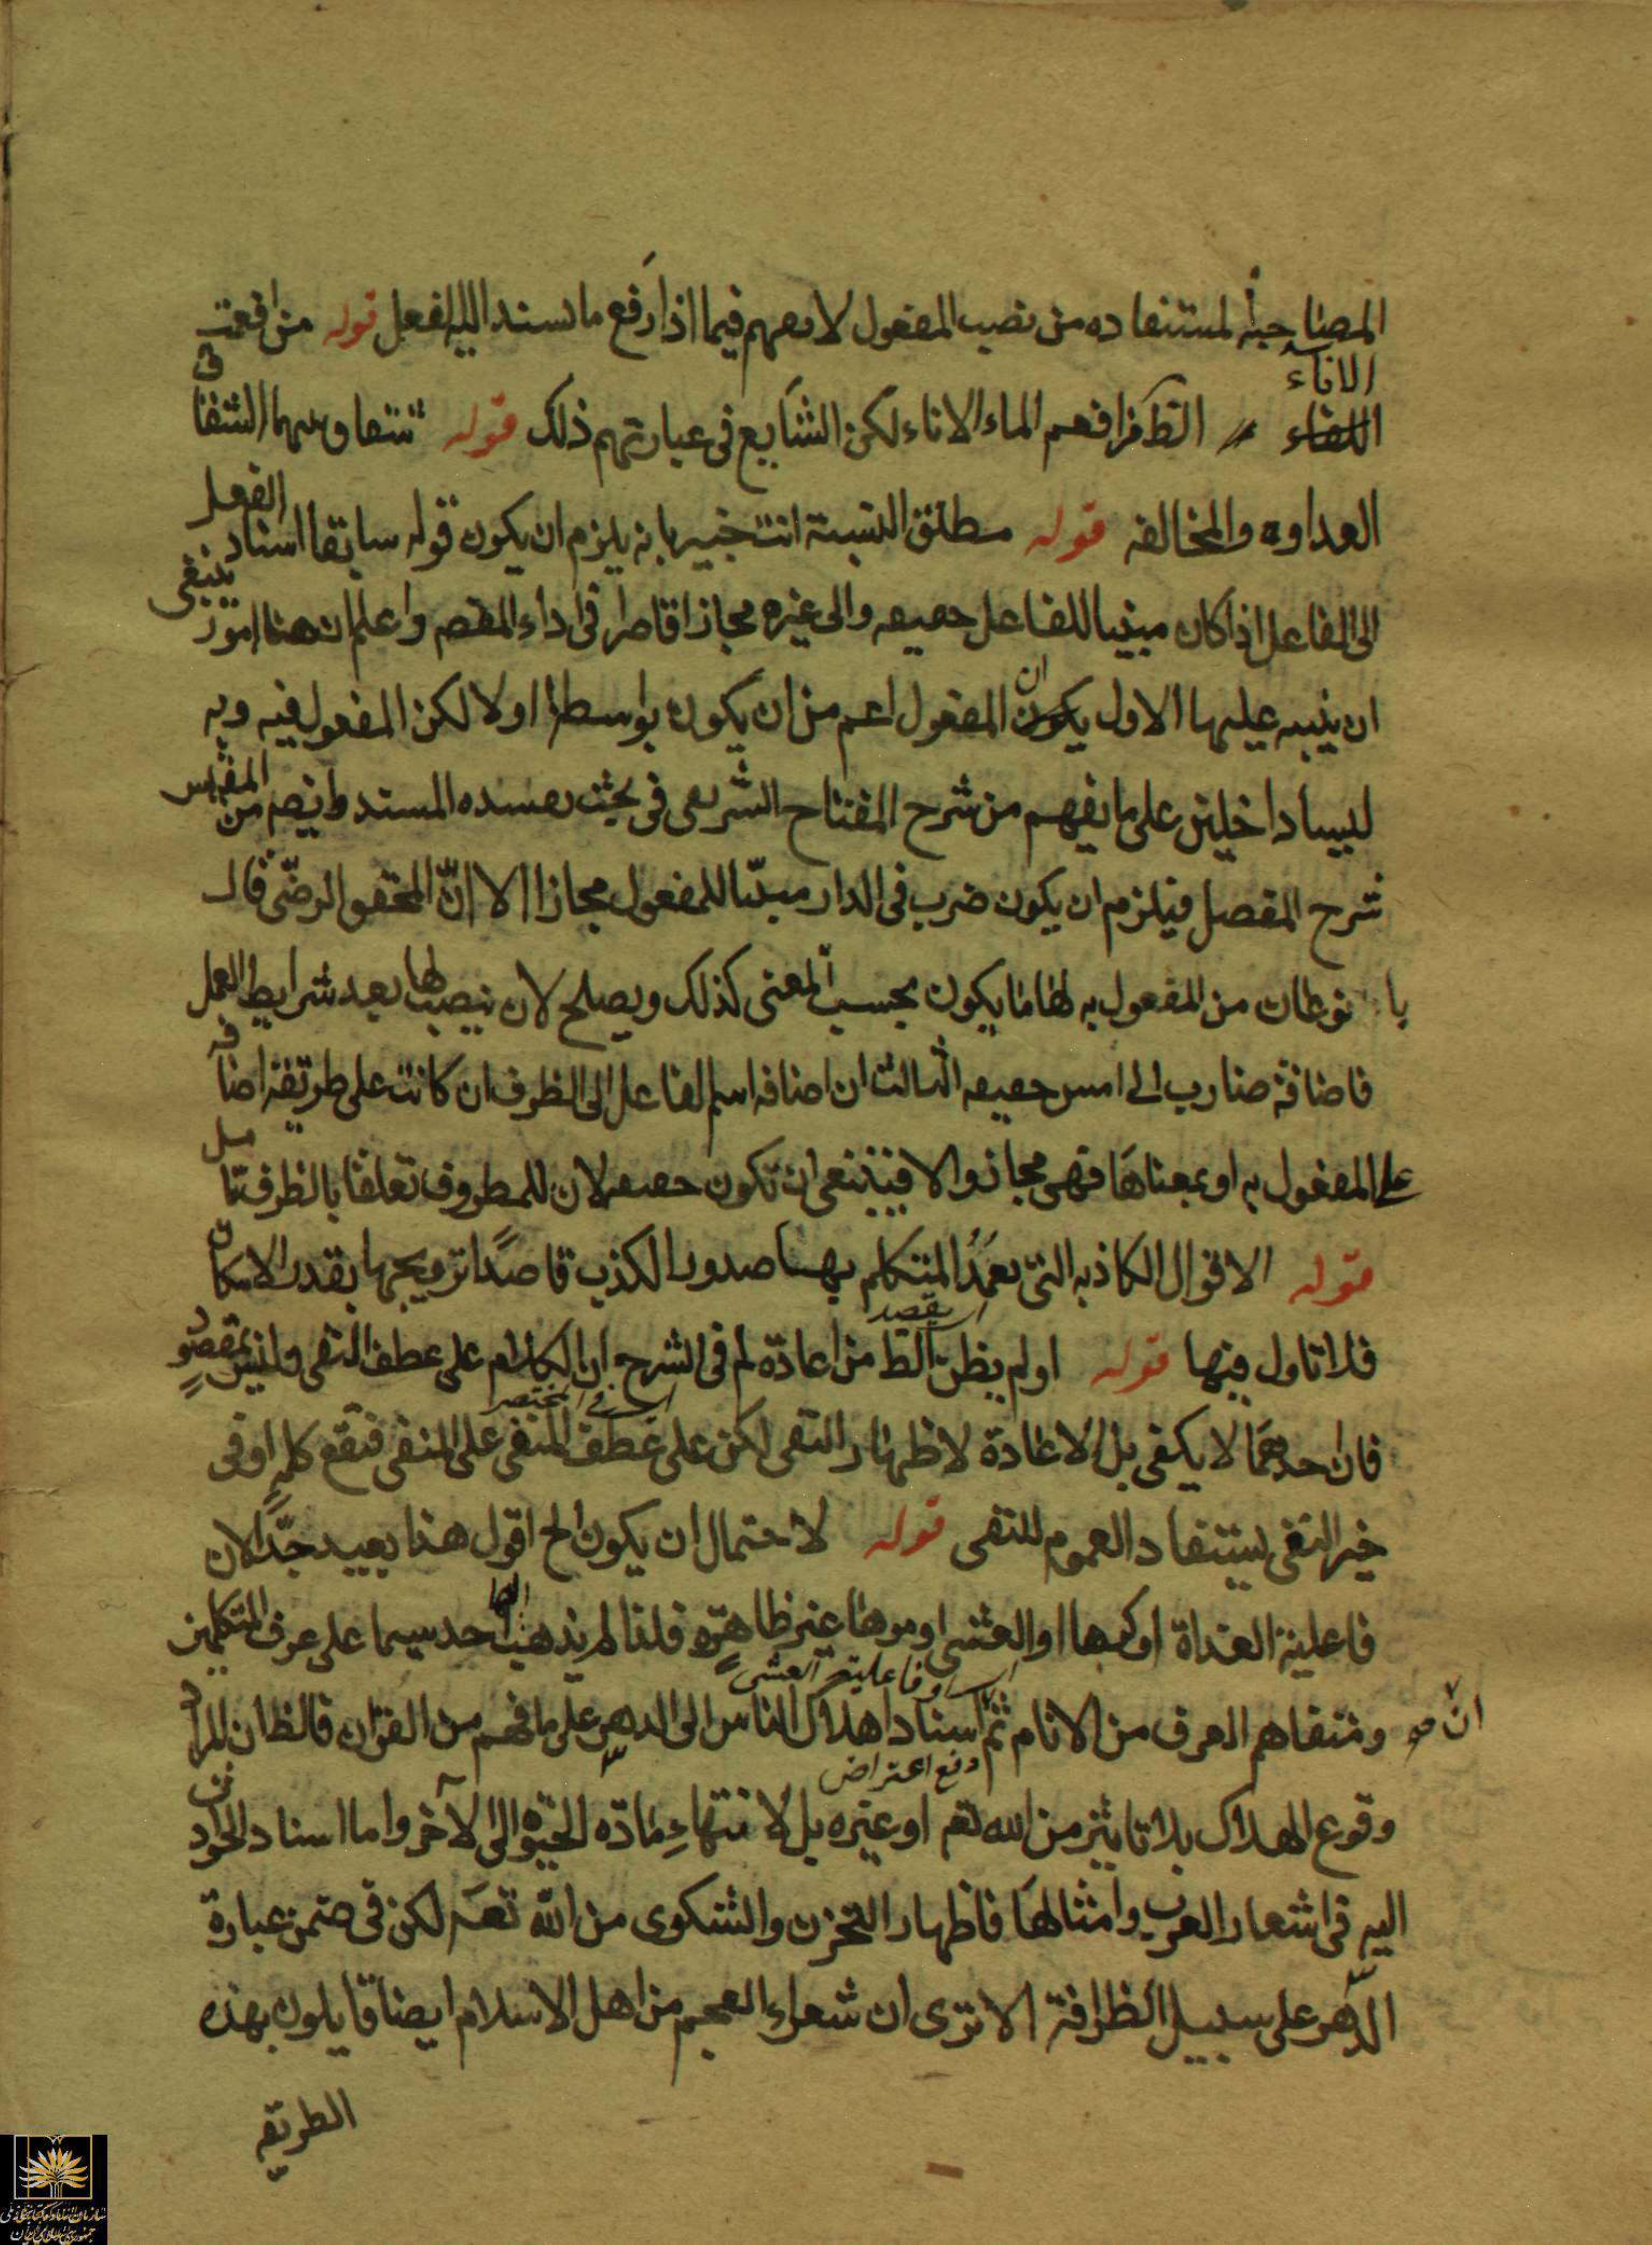 المصاحبة لمستفاده من نصب المفعول لا يفهم فيما اذا رفع ما يسند اليه الفعل قوله من افعمت
الاناء الظ فرا فعم الماء الاناء لكن الشايع فى عبارتهم ذلك قوله شقاق وسهما الشقاق
العداوه والمخالفه قوله مطلق النسبة انت خبير بانه يلزم ان يكون قوله سابقا اسناد الفعل
الى الفاعل اذا كان مبنيا للفاعل حقيقه والى غيره مجازا قاصرا فى اداء المقصم واعلم ان هنا امور ينبغى
ان ينبه عليها الاول ان المفعول اعم من ان يكون بواسطة او لا لكن المفعول فيه وبه
ليسا داخلين على ما يفهم من شرح المفتاح الشريفى فى بحث المسند وايضم من
شرح المفصل فيلزم ان يكون ضرب فى الدار مبنيا للمفعول مجازا الا ان المحقق الرضى قال
با نوعان من المفعول به فما يكون بحسب المعنى كذلك ويصلح لان ينصبها بعد شرايط العمل
فاضافة ضارب الى امس حقيقه الثالث ان اضافه اسم الفاعل الى الظرف ان كانت على طريقة اضافه
على المفعول به او بمعناها فهى مجاز والا فينبغى ان تكون حقيقه لان للمظروف تعلقا بالظرف
قوله الاقوال الكاذبه التى يعمد المتكلم بها صدور الكذب قاصدا ترويجها بقدر الامكان
فلا تاول فيها قوله او لم يظن الظ من اعادة لم فى الشرح ان الكلام على عطف النفى وليس بمقصود
فان احدهما لا يكفى بل الاعادة لاظهار النفى لكن على عطف المنفى على المنفى فتقع كلمة او فى
خير النفى ليستفاد العموم للنفى قوله لاحتمال ان يكون الخ اقول هذا بعيد جدا لان
فاعلية الغداة او كرها او العشى او مرها غير ظاهرة فلذا لم يذهب اليها احد سيما على عرف المتكلمين
او فاعلية العشى
ومتفاهم العرف من الانام ثم اسناد اهلاك الناس الى الدهر على ما فهم من القرآن فالظ ان المراد
دفع اعتراض
وقوع الهلاك بلا تاثير من الله تعم او غيره بل لانتهاء مادة الحيوة الى الآخر واما اسناد الحوادث
اليه فى اشعار العرب وامثالها فاظهار التحزن والشكوى من الله تعم لكن فى ضمن عبارة
الدهر على سبيل الظرافة الا ترى ان شعراء العجم من اهل الاسلام ايضا قايلون بهذه
الطريقه